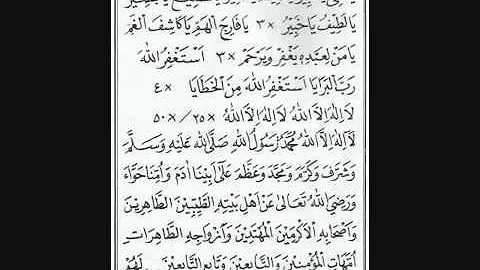 يَالَطِيْفُ يَاخَبِيْرُ ×٣ يَافَارِجَ الْهَمِّ يَاكَاشِفَ الْغَمِّ
يَامَنْ لِعَبْدِهِ يَغْفِرُ وَيَرْحَمُ ×٣ اَسْتَغْفِرُ اللهَ
رَبَّ الْبَرَايَا اَسْتَغْفِرُ اللهَ مِنَ الْخَطَايَا ×٤
لَااِلٰهَ اِلَّا اللهُ لَااِلٰهَ اِلَّا اللهُ ×٢٥/×٥٠
لَااِلٰهَ اِلَّا اللهُ مُحَمَّدٌ رَسُوْلُ اللهِ صَلَّى اللهُ عَلَيْهِ وَسَلَّمَ
وَشَرَّفَ وَكَرَّمَ وَمَجَّدَ وَعَظَّمَ عَلَى اَبِيْنَا اٰدَمَ وَاُمِّنَا حَوَّاءَ
وَرَضِيَ اللهُ تَعَالَى عَنْ اَهْلِ بَيْتِهِ الطَّيِّبِيْنَ الطَّاهِرِيْنَ
وَاَصْحَابِهِ الْاَكْرَمِيْنَ الْمُهْتَدِيْنَ وَاَزْوَاجِهِ الطَّاهِرَاتِ
اُمَّهَاتِ الْمُؤْمِنِيْنَ وَالتَّابِعِيْنَ وَتَابِعِ التَّابِعِيْنَ لَهُمْ